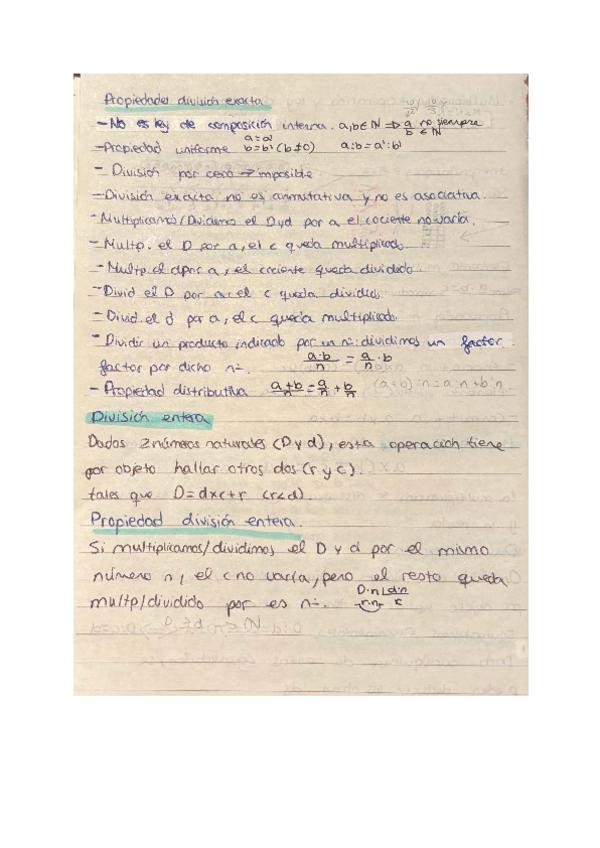 Propiedades división exacta.
- No es ley de composición interna. a,b ∈ N ⇒ a/b no siempre ∈ N
- Propiedad uniforme a=a' b=b' (b≠0) a:b=a':b'
- División por cero → imposible
- División exacta no es conmutativa y no es asociativa.
- Multiplicamos/Dividimos el D y d por a el cociente no varía.
- Multp. el D por a, el c queda multiplicado.
- Multp. el d por a, el cociente queda dividido
- Divid el D por a, el c queda dividido.
- Divid. el d por a, el c queda multiplicado.
- Dividir un producto indicado por un nº: dividimos un factor.
factor por dicho nº. a·b/n = a/n · b
- Propiedad distributiva a+b/n = a/n + b/n (a+b):n=a:n+b:n
División entera
Dados 2 números naturales (D y d), esta operación tiene
por objeto hallar otros dos (r y c).
tales que D=dxc+r (r<d).
Propiedad división entera.
Si multiplicamos/dividimos el D y d por el mismo
número n, el c no varía, pero el resto queda
multp/dividido por es nº. D·n d·n
r·n c